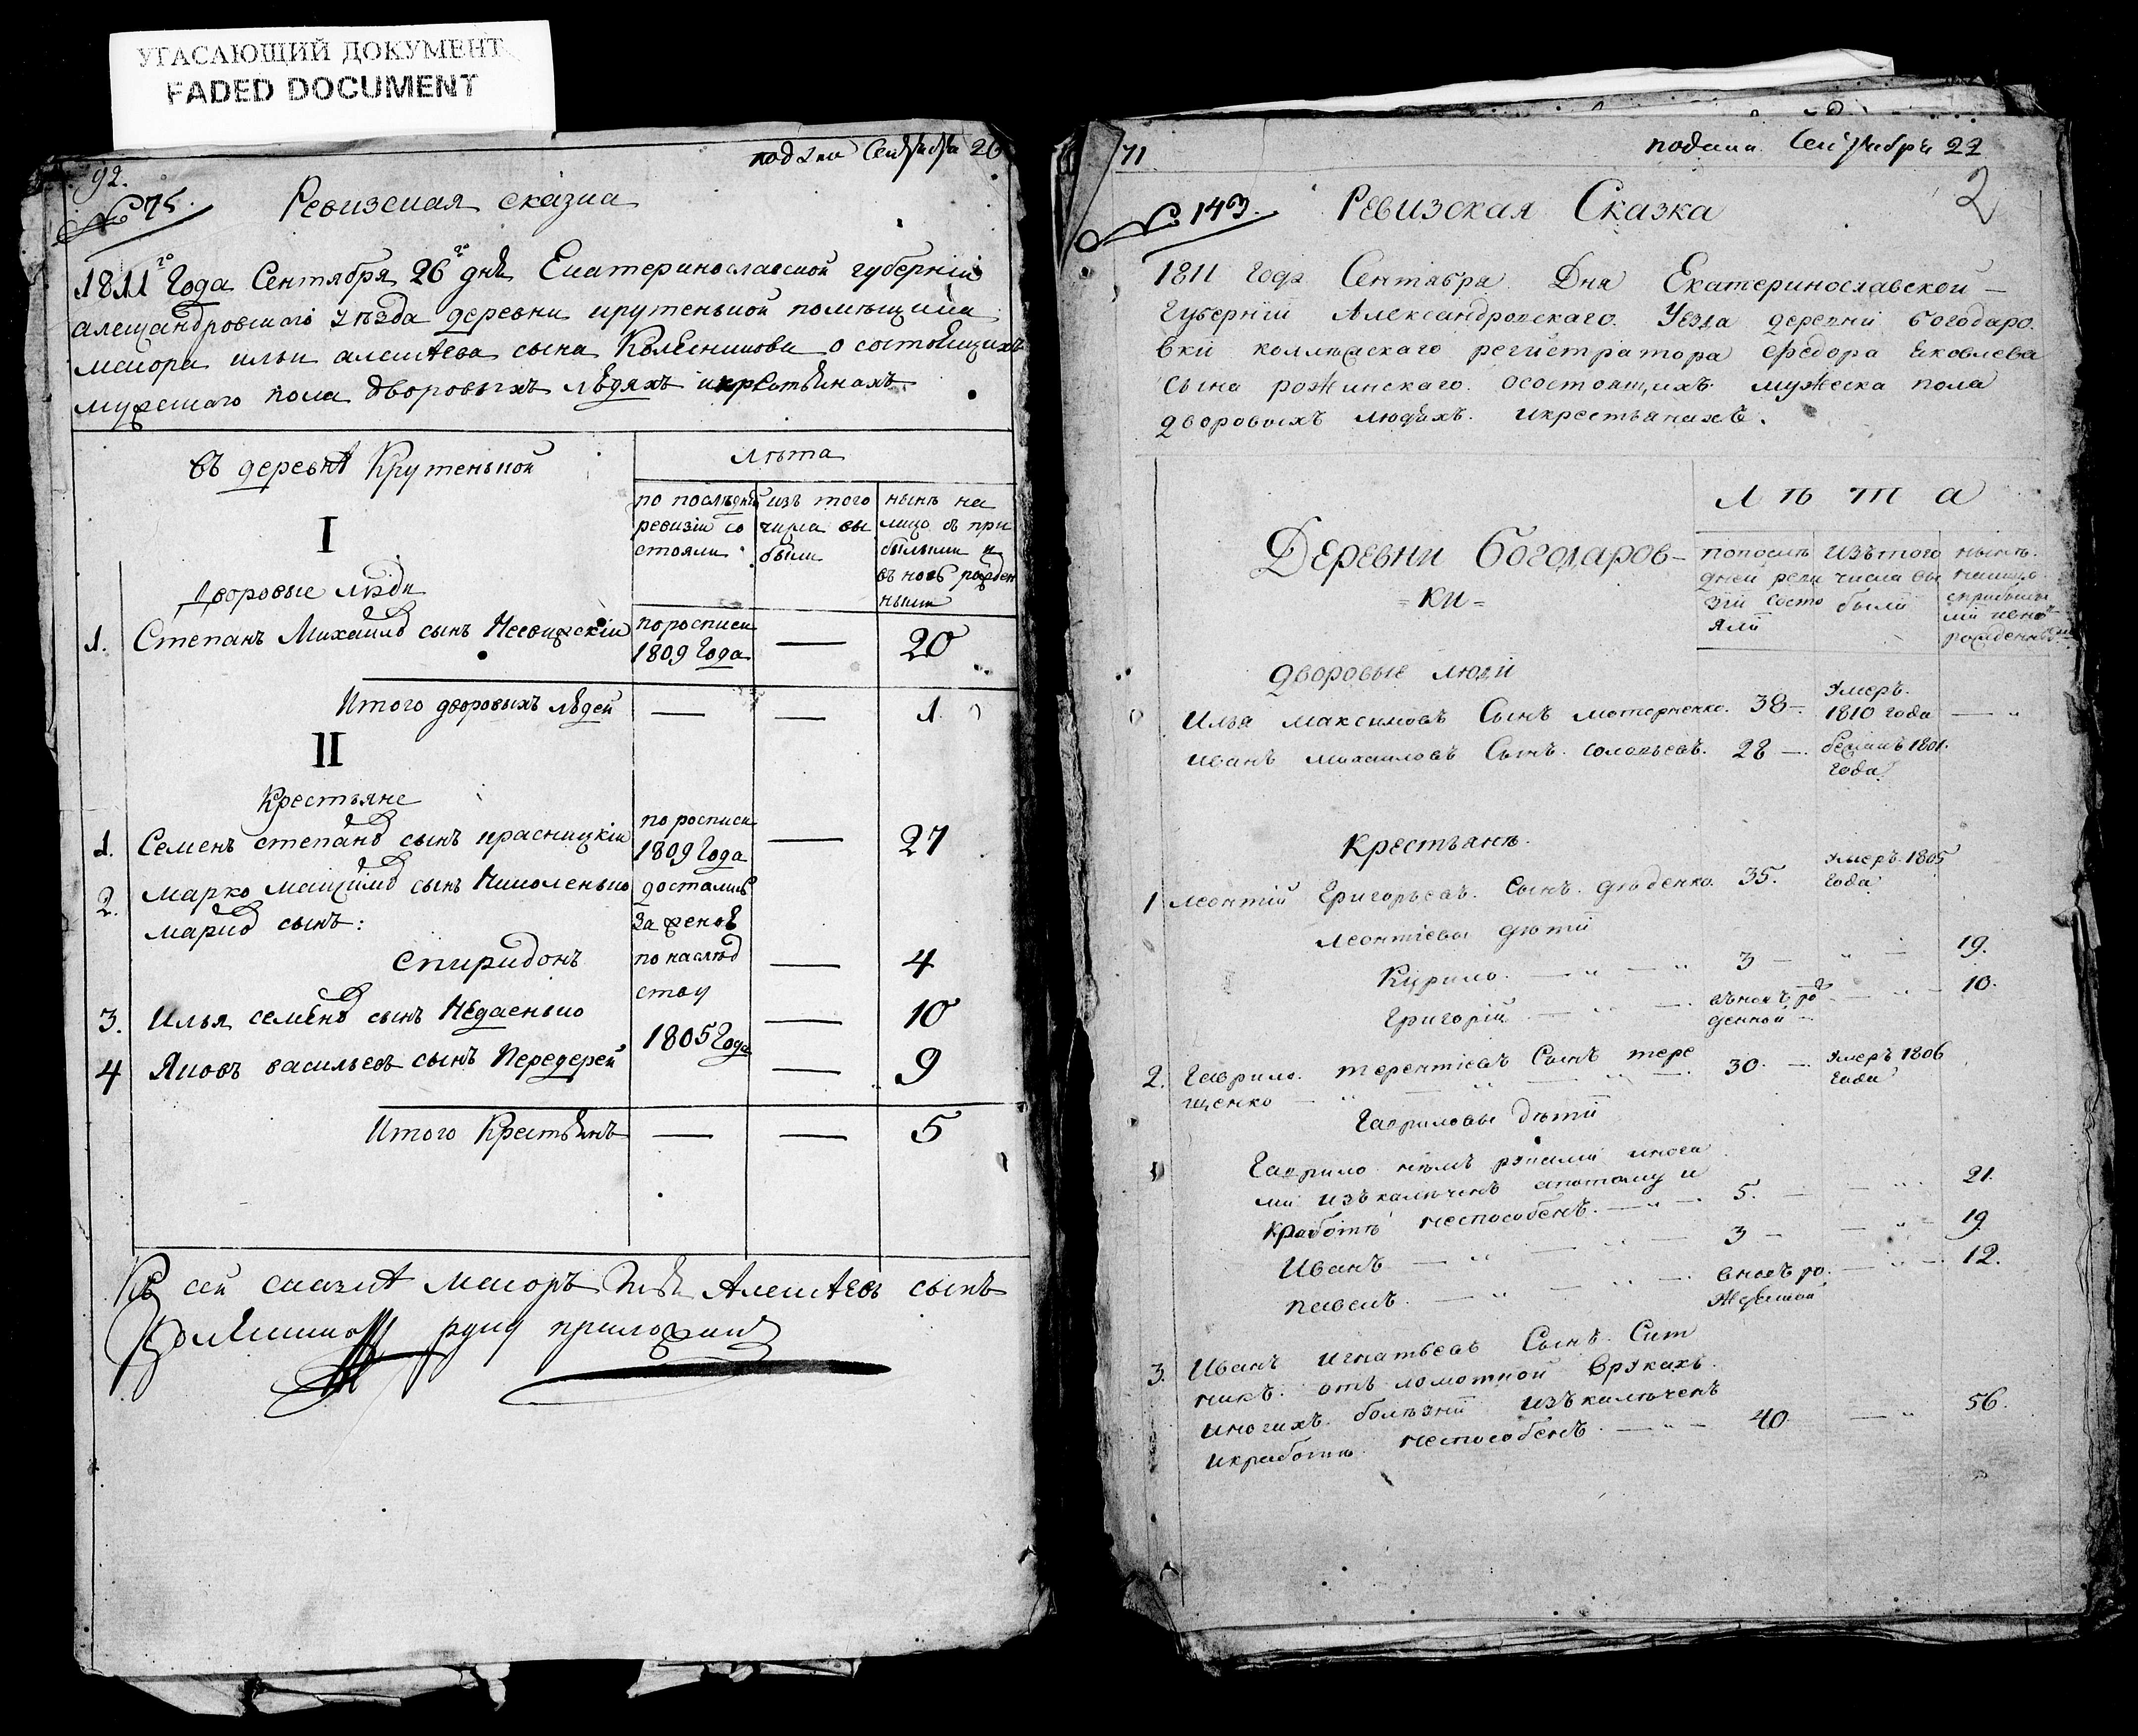 УГАСАЮЩИЙ ДОКУМЕНТ
FADED DOCUMENT
92.
подана Сентября 26
№ 75.
Ревизская сказка
1811го Года Сентября 26го дня Екатеринославской губерніи
александровскаго уѣзда деревни крутенькой помѣщика
маиора ильи алексѣева сына Колесникова о состоящихъ
мужескаго пола дворовыхъ людяхъ и крестьянахъ
въ деревнѣ Крутенькой
Лѣта
по последней ревизіи состояли
изъ того числа выбыли
нынѣ на лицо съ прибылыми и вновь рожденными
I
Дворовые люди
1. Степанъ Михайловъ сынъ
по росписи 1809 Года — 20
Итого дворовыхъ людей — — 1
II
Крестьяне
1. Семенъ степановъ сынъ красницкій по росписи 1809 Года — 27
2. марко сынъ
марковъ сынъ:
Спиридонъ — 4
достались за женою по наслѣдству 1805 Года
3. Илья семеновъ сынъ Недаенько — 10
4 Яковъ васильевъ сынъ Передерей — 9
Итого Крестьянъ — — 5
Къ сей сказкѣ маиоръ Илья Алексѣевъ сынъ
Колесниковъ руку приложилъ
71
подана Сентября 22
2
№ 143.
Ревизская Сказка
1811 Года Сентября Дня Екатеринославской –
Губерніи Александровскаго Уезда деревни богодаро
вки коллежскаго регистратора Федора Яковлева
сына рожинскаго о состоящихъ мужеска пола
дворовыхъ людяхъ и крестьянахъ.
Деревни Богодаров–
=ки=
Лѣта
по последней ревизіи состояли
изъ того числа выбыли
нынѣ на лицо съ прибылыми и вновь рожденными
дворовые люди
Илья Максимовъ Сынъ 38 – Умеръ 1810 года —
Иванъ михайловъ Сынъ соловьевъ. 28 – бежалъ 1801. года
Крестьянѣ.
1 леонтій Григорьевъ Сынъ дюденко. 35. Умеръ 1805 Года
леонтіевы дѣти
Кирило. 3 – 19.
Григорій вновь рожденной 10.
2. Гаврило терентіевъ Сынъ тере
щенко 30. Умеръ 1806 года
Гавриловы дѣти
Гаврило нѣмъ руками и нога
ми изъкалѣченъ апотому и
кработѣ неспособенъ. 5. 21.
Иванъ 3 – 19
павелъ. вновь рожденной 12.
3. Иванъ игнатьевъ Сынъ Сит
никъ отъ ломотной врукахъ
иногихъ болѣзни изъкалѣченъ
икработѣ неспособенъ 40 56.